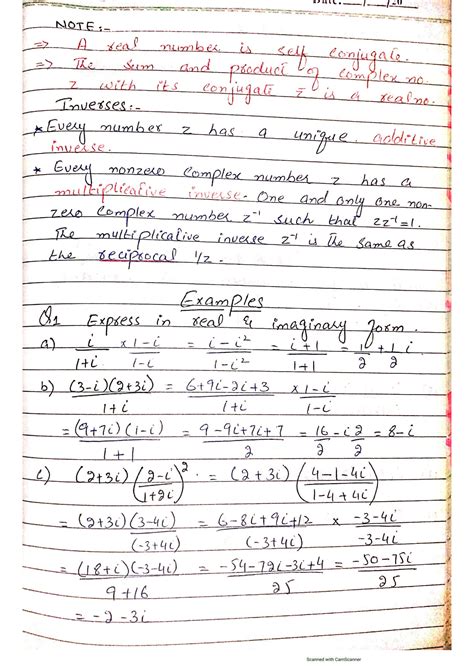 Date: / /20
NOTE:-
⇒ A real number is self conjugate.
⇒ The sum and product of complex no.
z with its conjugate z̄ is a real no.
Inverses:-
* Every number z has a unique additive
inverse.
* Every nonzero complex number z has a
multiplicative inverse. One and only one non-
zero complex number z⁻¹ such that zz⁻¹=1.
The multiplicative inverse z⁻¹ is the same as
the reciprocal 1/z.
Examples
Q1 Express in real & imaginary form.
a) i/(1+i) × (1-i)/(1-i) = (i-i²)/(1-i²) = (i+1)/(1+1) = 1/2 + 1/2 i
b) (3-i)(2+3i)/(1+i) = (6+9i-2i+3)/(1+i) × (1-i)/(1-i)
= (9+7i)(1-i)/(1+1) = (9-9i+7i+7)/2 = 16/2 - i 2/2 = 8-i
c) (2+3i)((2-i)/(1+2i))² = (2+3i)((4-1-4i)/(1-4+4i))
= (2+3i)(3-4i)/(-3+4i) = (6-8i+9i+12)/(-3+4i) × (-3-4i)/(-3-4i)
= (18+i)(-3-4i)/(9+16) = (-54-72i-3i+4)/25 = (-50-75i)/25
= -2-3i
Scanned with CamScanner